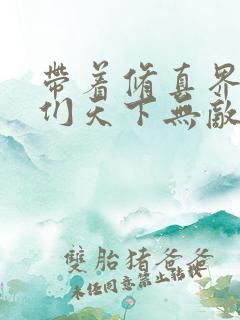 帶着脩真界
们天下無敵
雙胎猪爸爸
未经同意禁止转载